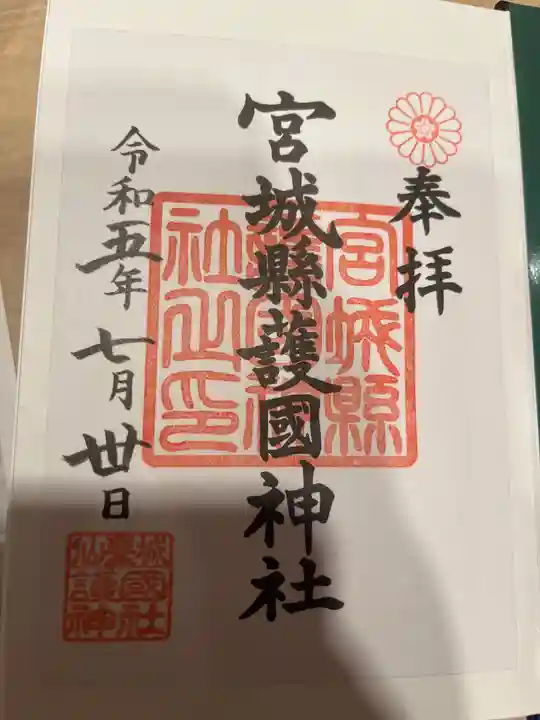 奉拝
宮城縣護國神社
宮城縣
護國神
社之印
令和五年七月卅日